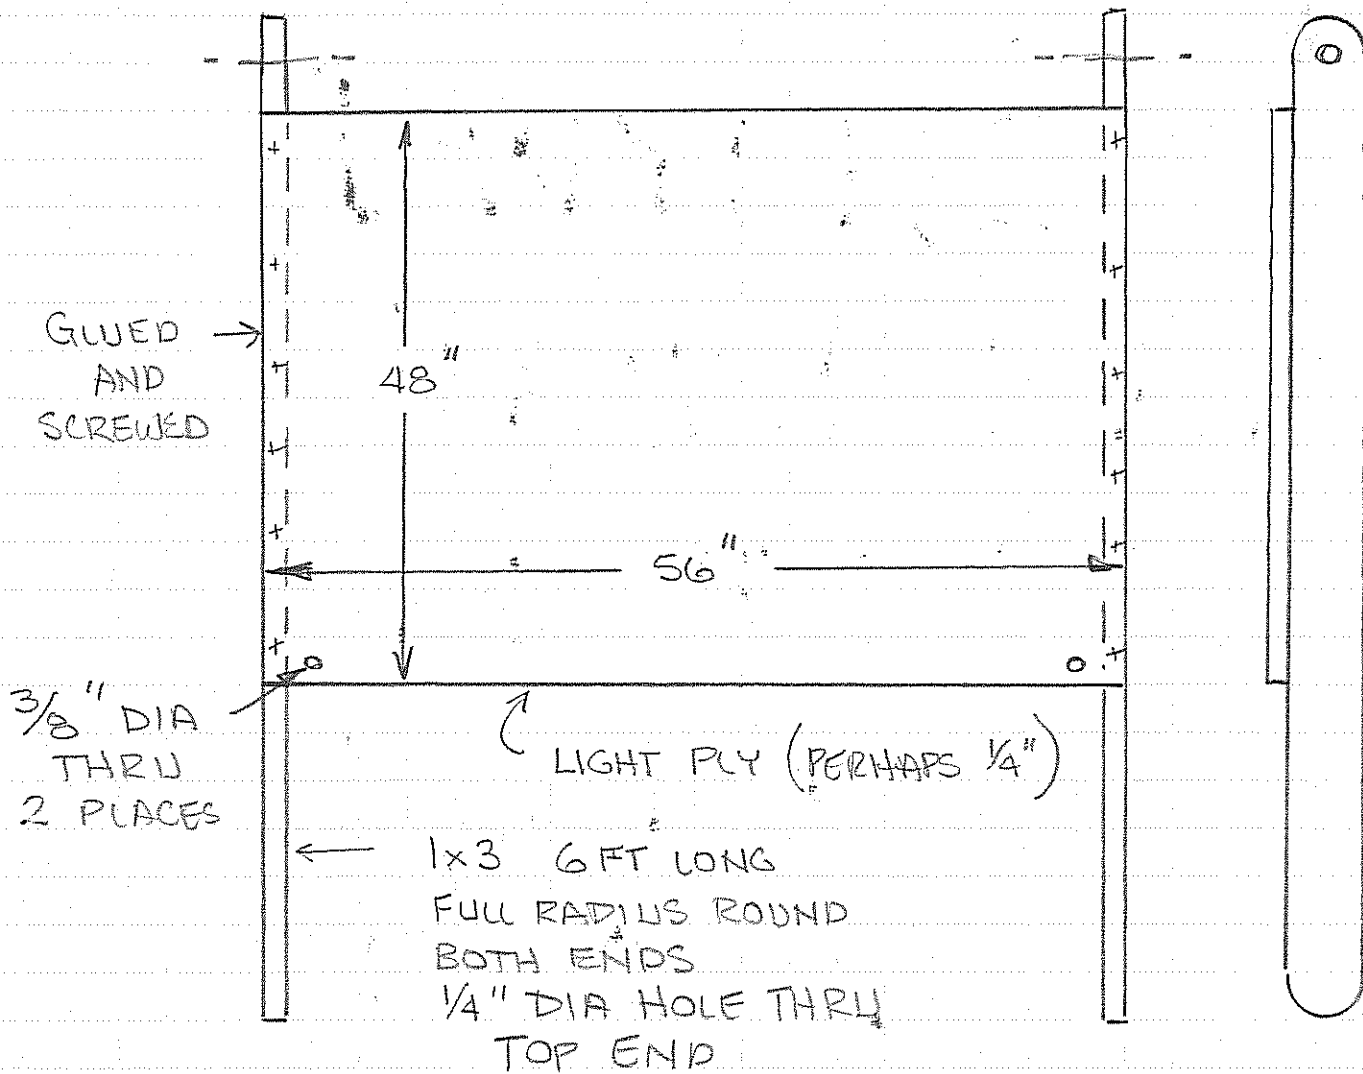 GLUED
AND
SCREWED
48"
56"
3/8" DIA
THRU
2 PLACES
LIGHT PLY (PERHAPS 1/4")
1x3 6 FT LONG
FULL RADIUS ROUND
BOTH ENDS
1/4" DIA HOLE THRU
TOP END